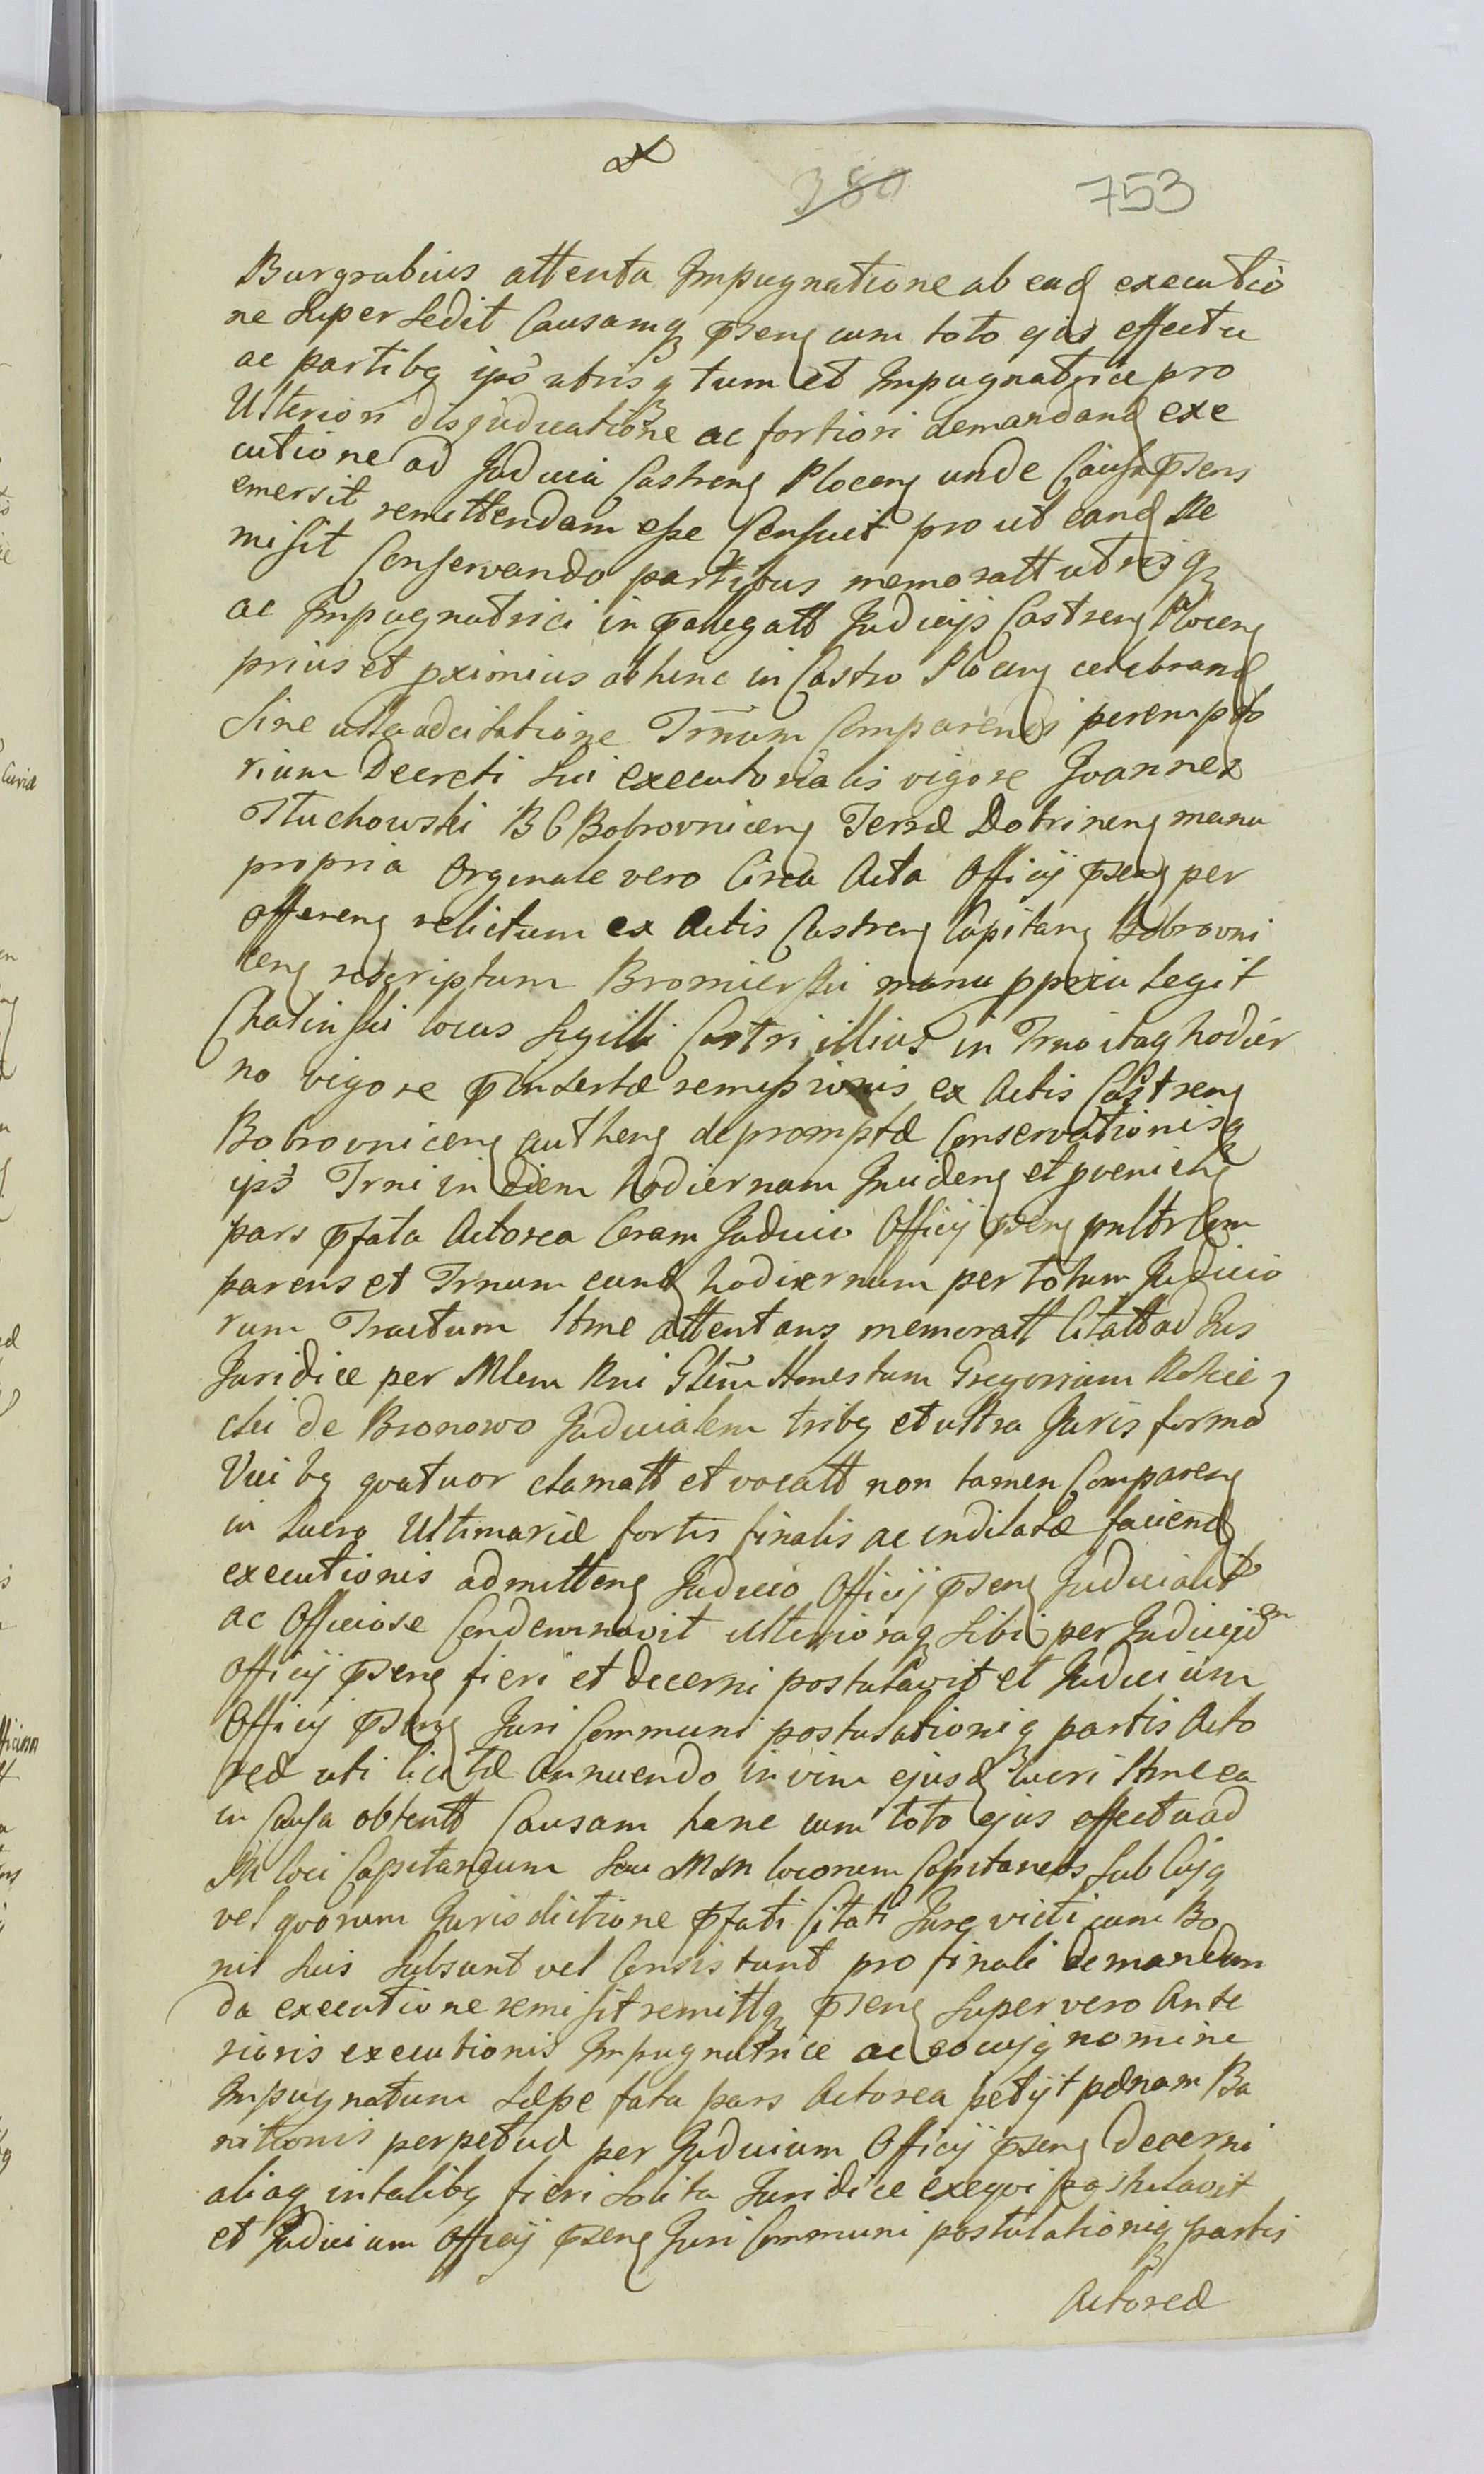 380 753
Burgrabius attenta Impugnatione ab ead executio
ne Supersedit Causamq pseng cum toto ejus effectu
ac partibq ipõ utrisq tum et Impugnatrice pro
Ulteriori disjudicatione ac fortiori demandand exe
cutione ad Judicia Castreng Ploceng unde Causa psens
emersit remittendam esse Censuit prout eand Re
misit Conservando partibus memoratt utrisq
ac Impugnatrici in pallegatt Judicijs Castreng Ploceng
prius et pximius abhinc in Castro Ploceng celebrand
Sine ulla adcitatione Trnum Comparendi perempto
rium Decreti Sui executorialis vigore Joannes
Tłuchowski B C Bobrovniceng Terræ Dobrineng manu
propria Orginale vero Circa Acta Officij pseng per
offereng relictum ex Actis Castreng Capitang Bobrovni
ceng rescriptum Bromierski manu ppria Legit
Chalinski locus Sigilli Castri illius in Trno itaq hodier
no vigore pinsertæ remissionis ex Actis Castreng
Bobrovniceng autheng depromptæ Conservationisq
ips Trni in diem hodiernam Incideng et pvenieng
pars pfata Actorea Coram Judicio Officij pseng pnltr Com
parens et Trnum eund hodiernum per totum Judicio
rum Tractum Itme attentans memoratt Citatt ad Jus
Juridice per Mlem Rni Glem Honestum Gregorium Rokic
cki de Bronowo Judicialem tribq et ultra Juris forma
Vicibq quatuor clamatt et vocatt non tamen Compareng
in Lucro Ultimariæ fortis finalis ac indilatæ faciend
executionis admitteng Judicio Officij pseng Judicialit
ac Officiose Condemnavit ulterioraq Sibi per Judicium
Officij pseng fieri et decerni postulavit et Judicium
Officij pseng Juri Communi postulationiq partis Acto
reæ uti licitæ annuendo in vim ejusd Lucri Itme ea
in Causa obtentt Causam hanc cum toto ejus effectu ad
M loci Capitaneum Seu MM locorum Capitaneos Sub Cujq
vel quorum Jurisdictione pfati Citati Jure victi cum Bo
nis Suis Subsunt vel Consistunt pro finali demandan
da executione remisit remittq pseng Super vero Ante
rioris executionis Impugnatrice ac eo cujq nomine
Impugnatum Sæpe fata pars Actorea petijt pœnam Ba
nitionis perpetuæ per Judicium Officij pseng decerni
aliaq in talibq fieri Solita Juridice exequi postulavit
et Judicium Officij pseng Juri Communi postulationiq partis
Actoreæ